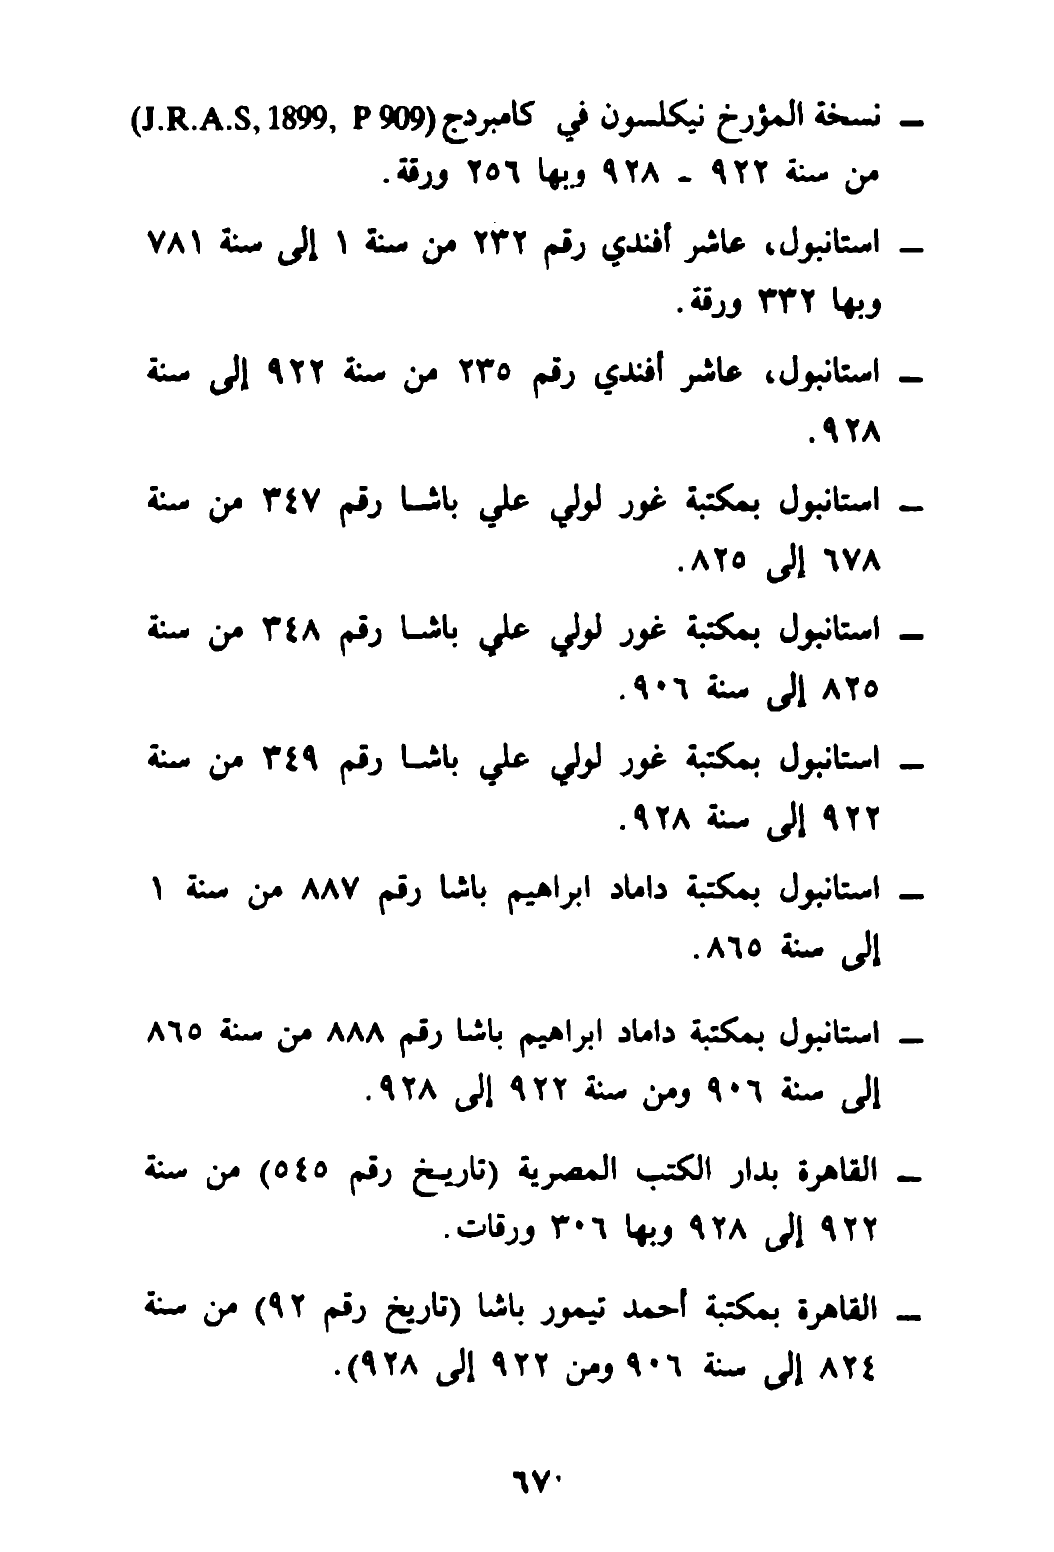 ـ نسخة المؤرخ نيكلسون في كامبردج (J.R.A.S, 1899, P 909)
من سنة ٩٢٢ - ٩٢٨ وبها ٢٥٦ ورقة.
ـ استانبول، عاشر أفندي رقم ٢٣٢ من سنة ١ إلى سنة ٧٨١
وبها ٣٣٢ ورقة.
ـ استانبول، عاشر أفندي رقم ٢٣٥ من سنة ٩٢٢ إلى سنة
٩٢٨.
ـ استانبول بمكتبة غور لولي علي باشا رقم ٣٤٧ من سنة
٦٧٨ إلى ٨٢٥.
ـ استانبول بمكتبة غور لولي علي باشا رقم ٣٤٨ من سنة
٨٢٥ إلى سنة ٩٠٦.
ـ استانبول بمكتبة غور لولي علي باشا رقم ٣٤٩ من سنة
٩٢٢ إلى سنة ٩٢٨.
ـ استانبول بمكتبة داماد ابراهيم باشا رقم ٨٨٧ من سنة ١
إلى سنة ٨٦٥.
ـ استانبول بمكتبة داماد ابراهيم باشا رقم ٨٨٨ من سنة ٨٦٥
إلى سنة ٩٠٦ ومن سنة ٩٢٢ إلى ٩٢٨.
ـ القاهرة بدار الكتب المصرية (تاريخ رقم ٥٤٥) من سنة
٩٢٢ إلى ٩٢٨ وبها ٣٠٦ ورقات.
ـ القاهرة بمكتبة أحمد تيمور باشا (تاريخ رقم ٩٢) من سنة
٨٢٤ إلى سنة ٩٠٦ ومن ٩٢٢ إلى ٩٢٨).
٦٧٠